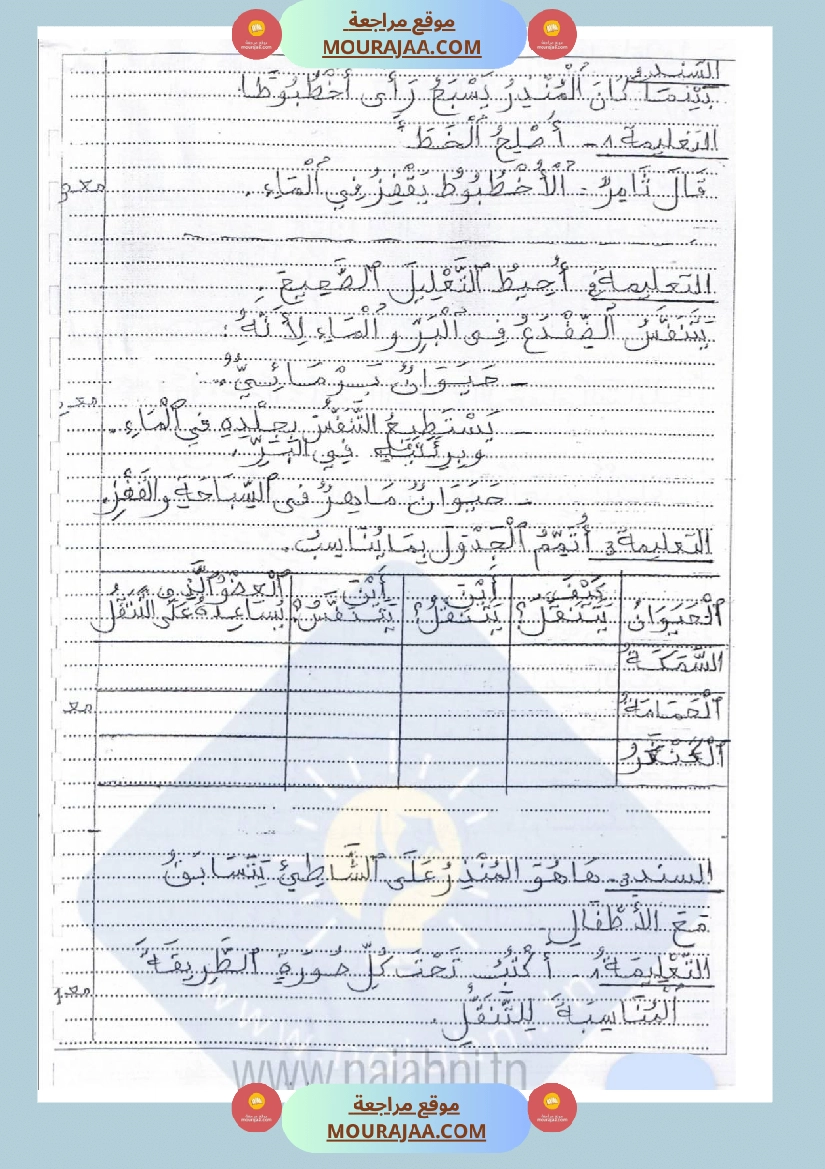 موقع مراجعة
MOURAJAA.COM
السند 2
بَيْنَمَا كَانَ الْمُنْذِرُ يَسْبَحُ رَأَى أُخْطُبُوطًا.
التعليمة 1 - أُصْلِحُ الْخَطَأَ
قَالَ ثَامِرٌ: الْأُخْطُبُوطُ يَقْفِزُ فِي الْمَاءِ.
مع 2
التعليمة 2 أُحِيطُ التَّعْلِيلَ الصَّحِيحَ.
يَتَنَفَّسُ الضِّفْدَعُ فِي الْبَرِّ وَالْمَاءِ لِأَنَّهُ:
- حَيَوَانٌ بَرْمَائِيٌّ.
- يَسْتَطِيعُ التَّنَفُّسَ بِجِلْدِهِ فِي الْمَاءِ.
وبِرِئَتَيْهِ فِي الْبَرِّ.
- حَيَوَانٌ مَاهِرٌ فِي السِّبَاحَةِ والقَفْزِ.
التعليمة 3 أُتَمِّمُ الْجَدْوَلَ بِمَا يُنَاسِبُ.
الْحَيَوَانُ كَيْفَ يَتَنَقَّلُ؟ أَيْنَ يَتَنَقَّلُ؟ أَيْنَ يَتَنَفَّسُ؟ الْعُضْوُ الَّذِي يُسَاعِدُهُ عَلَى التَّنَقُّلِ
السَّمَكَةُ
الْحَمَامَةُ
الْكَنْغَرُ
السند 3 - هَا هُوَ الْمُنْذِرُ عَلَى الشَّاطِئِ يَتَسَابَقُ
مَعَ الأَطْفَالِ
التَّعْلِيمَةُ 1 - أَكْتُبُ تَحْتَ كُلِّ صُورَةٍ الطَّرِيقَةَ
الْمُنَاسِبَةَ لِلتَّنَقُّلِ.
www.najahni.tn
موقع مراجعة
MOURAJAA.COM